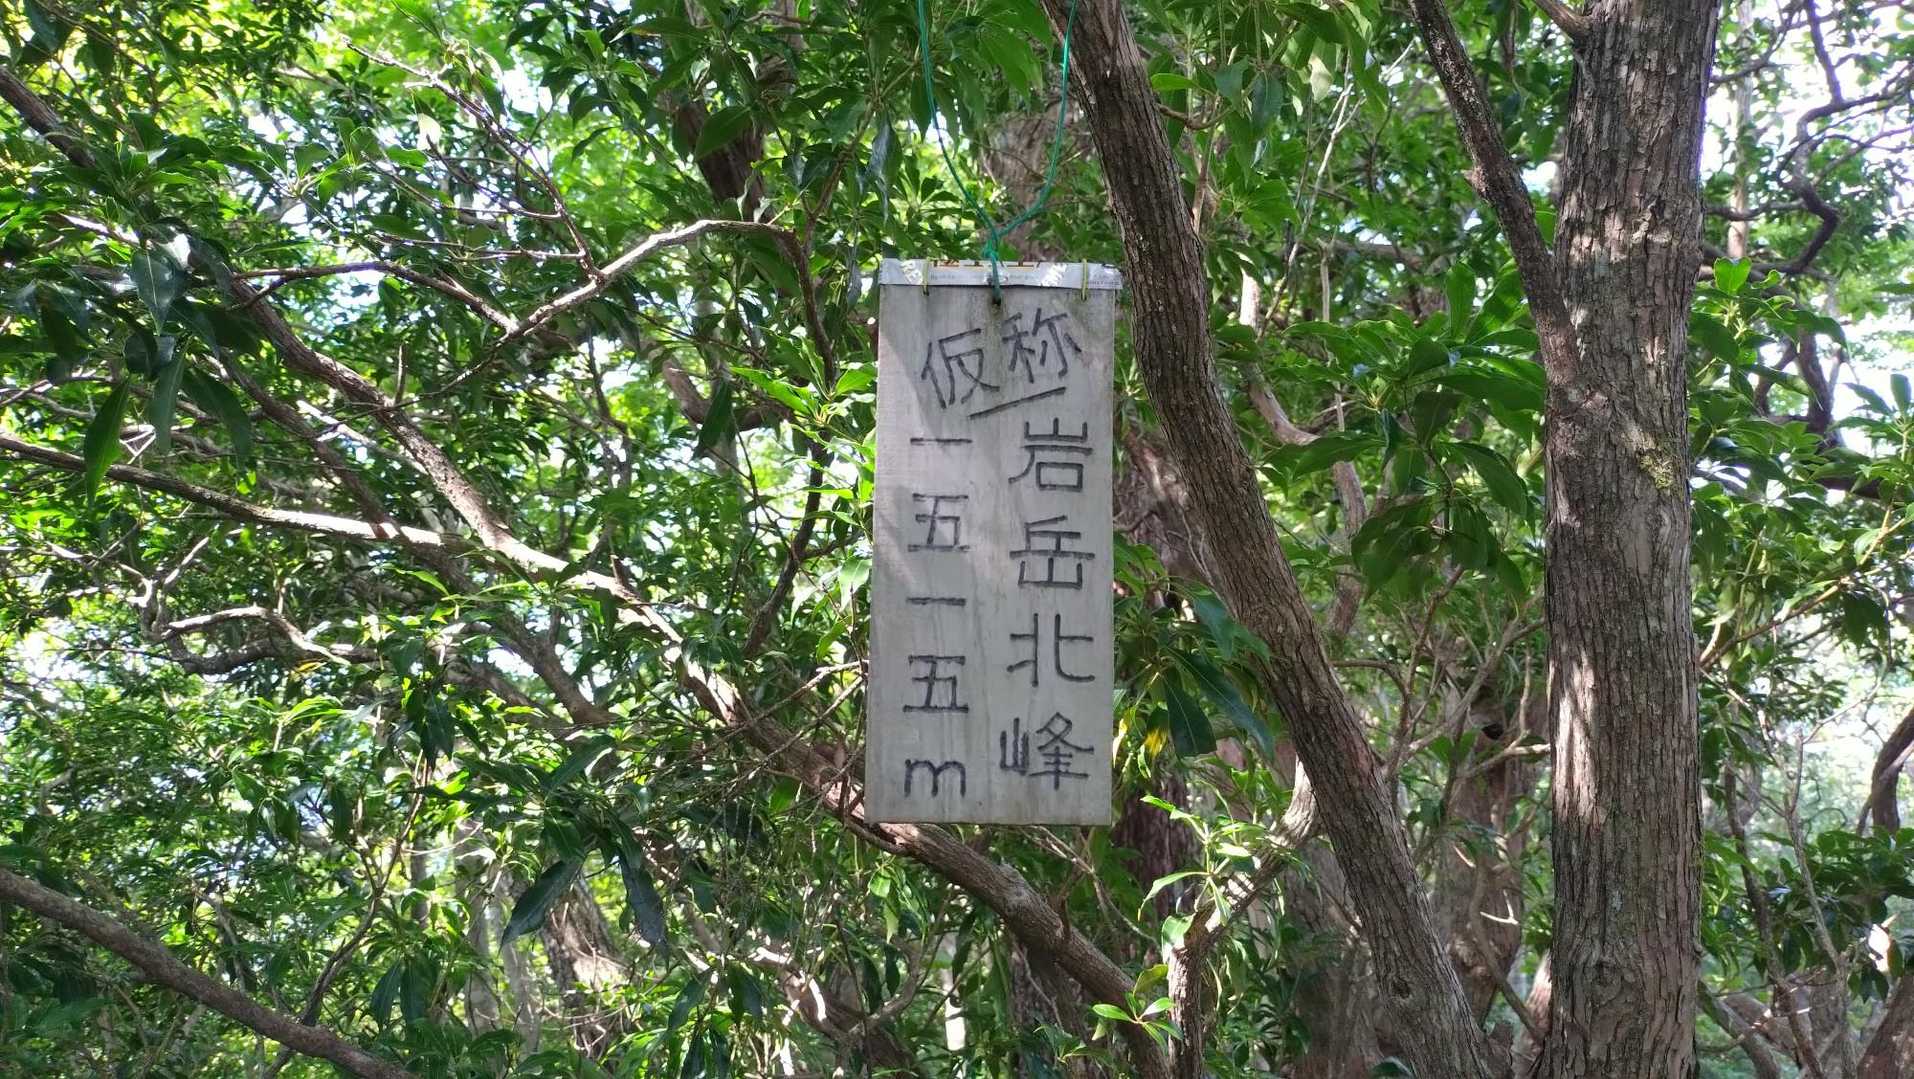 仮称
岩岳北峰
一五一五m